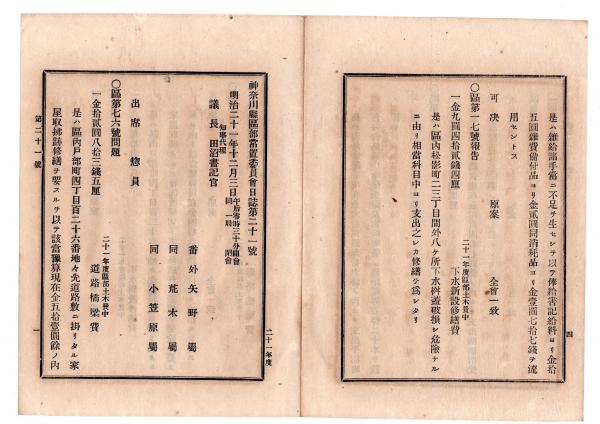 是ハ雜給諸手當ニ不足ヲ生セシヲ以テ俸給書記給料ヨリ金拾
五圓雜費備付品ヨリ金貳圓同消耗品ヨリ金壹圓七拾七錢ヲ流
用セントス
可決 原案 全會一致
〇區第一七號報告
二十一年度區部土木費中
一金九圓四拾貳錢四厘 下水新設修繕費
是ハ區內松影町二三丁目間外八ケ所下水桝蓋破損シ危險ナル
ニ由リ相當科目中ヨリ支出之レカ修繕ヲ爲シタリ
四
二十一年度
神奈川縣區部常置委員會日誌第二十一號
明治二十一年十二月三日午后零時三十分開會同一時閉會
議長 知事代理 田沼書記官
番外 矢野屬
同 荒木屬
同 小笠原屬
出席 惣員
〇區第七六號問題
二十一年度區部土木費中
一金拾貳圓八拾三錢五厘 道路橋梁費
是ハ區內戶部町四丁目百二十六番地々先道路敷ニ掛リタル家
屋取拂跡修繕ヲ要スルヲ以テ該當豫算現在金五拾壹圓餘ノ內
第二十一號
一